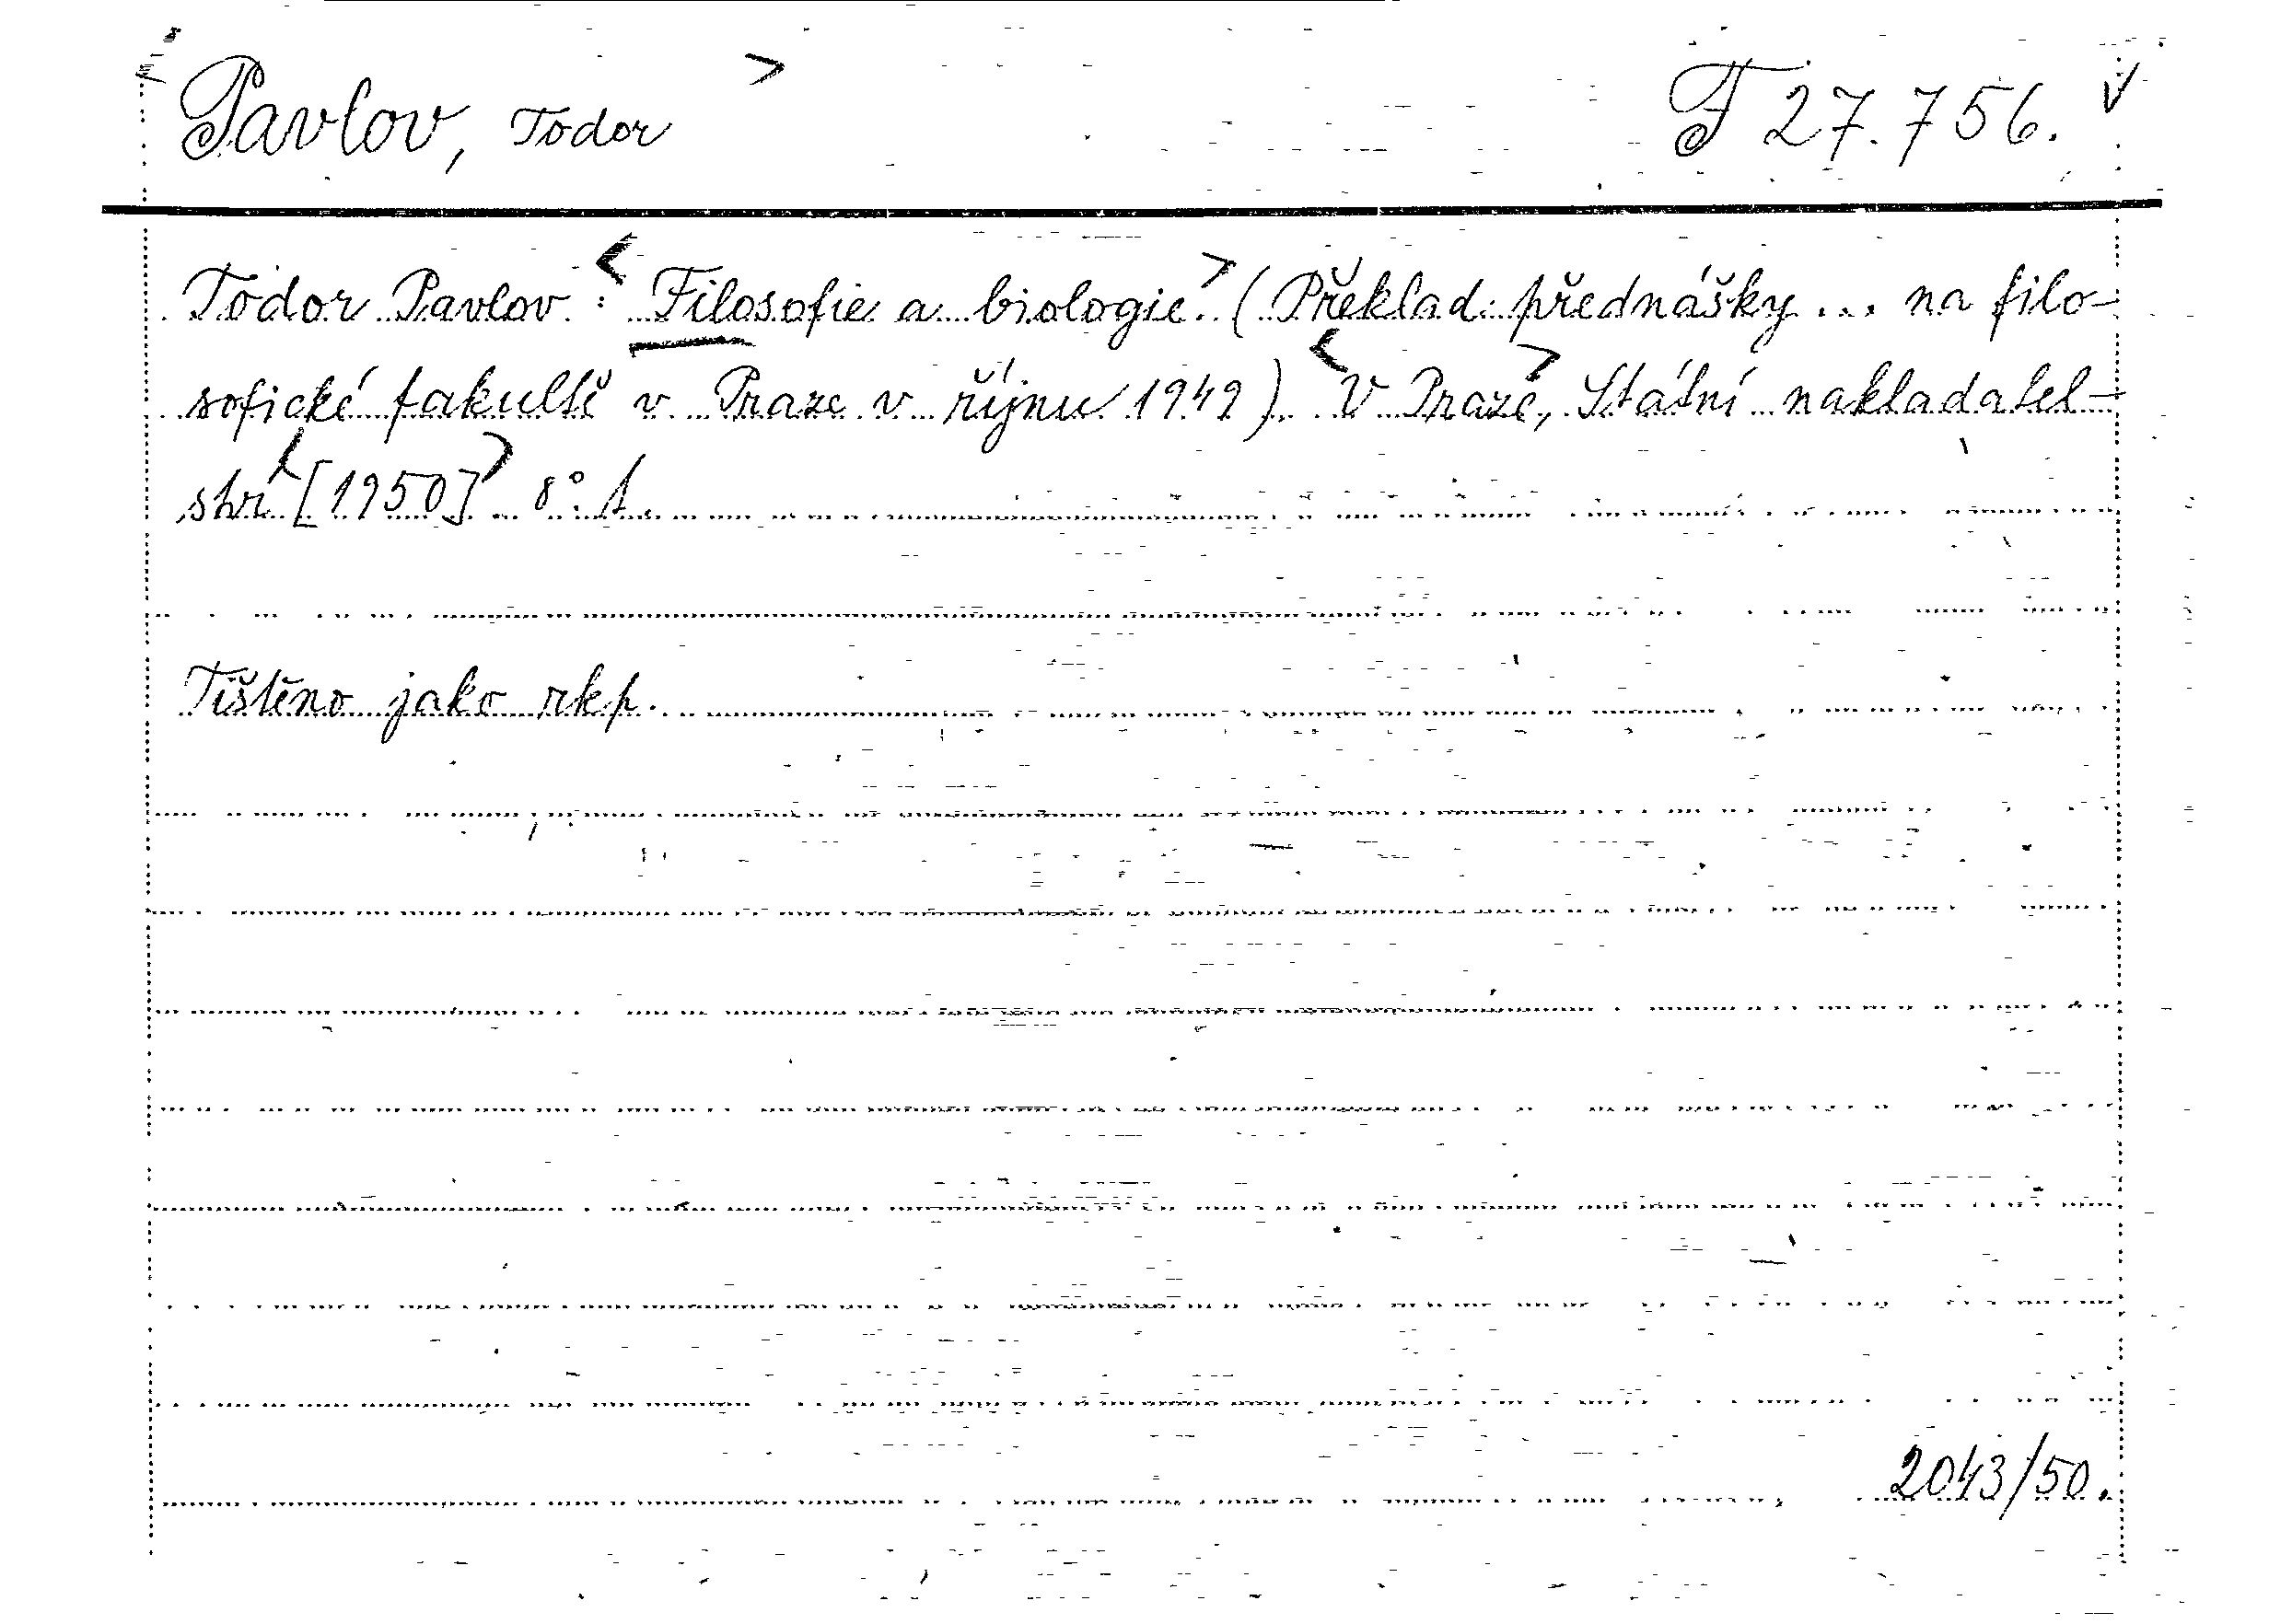 Pavlov, Todor > F 27.756. V
Todor Pavlov: <Filosofie a biologie.> (Překlad přednášky ... na filo-
sofické fakultě v Praze v říjnu 1949). <V Praze,> Státní nakladatel-
ství <[1950]> 8° 1.
Tištěno jako rkp.
2043/50.